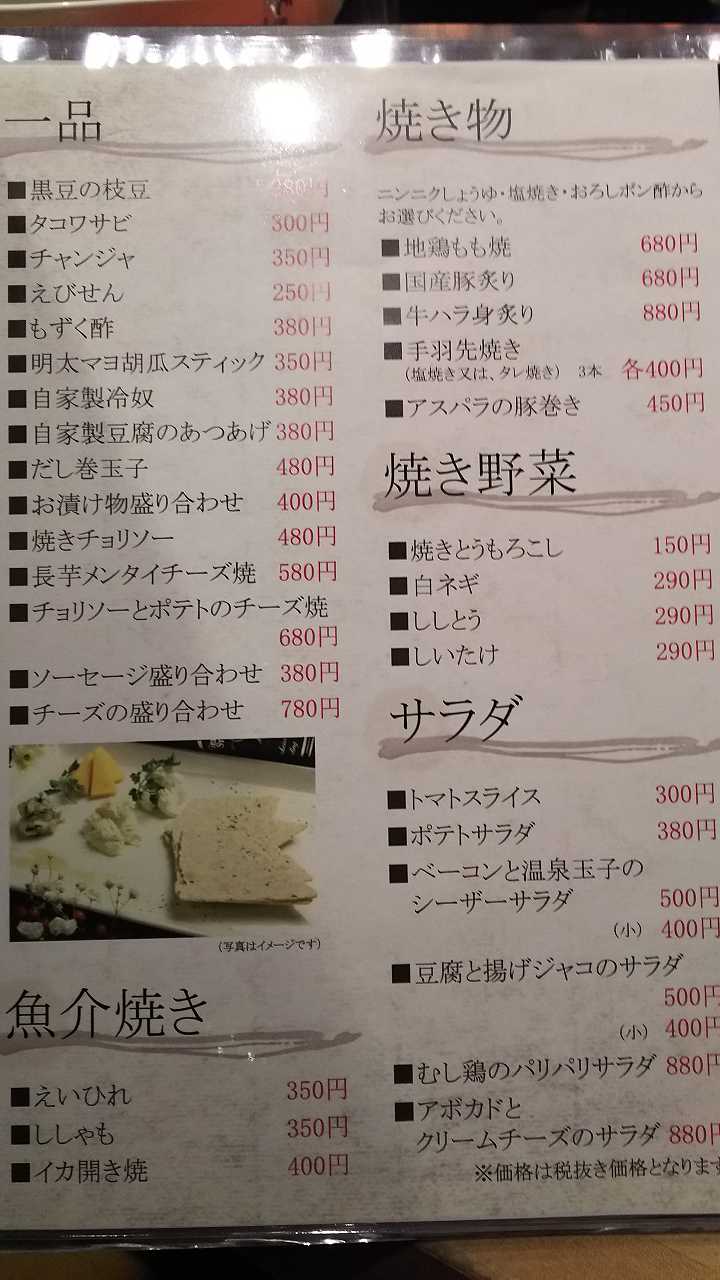 一品
■黒豆の枝豆 280円
■タコワサビ 300円
■チャンジャ 350円
■えびせん 250円
■もずく酢 380円
■明太マヨ胡瓜スティック 350円
■自家製冷奴 380円
■自家製豆腐のあつあげ 380円
■だし巻玉子 480円
■お漬け物盛り合わせ 400円
■焼きチョリソー 480円
■長芋メンタイチーズ焼 580円
■チョリソーとポテトのチーズ焼
680円
■ソーセージ盛り合わせ 380円
■チーズの盛り合わせ 780円
(写真はイメージです)
魚介焼き
■えいひれ 350円
■ししゃも 350円
■イカ開き焼 400円
焼き物
ニンニクしょうゆ・塩焼き・おろしポン酢から
お選びください。
■地鶏もも焼 680円
■国産豚炙り 680円
■牛ハラ身炙り 880円
■手羽先焼き
(塩焼き又は、タレ焼き) 3本 各400円
■アスパラの豚巻き 450円
焼き野菜
■焼きとうもろこし 150円
■白ネギ 290円
■ししとう 290円
■しいたけ 290円
サラダ
■トマトスライス 300円
■ポテトサラダ 380円
■ベーコンと温泉玉子の
シーザーサラダ 500円
(小) 400円
■豆腐と揚げジャコのサラダ
500円
(小) 400円
■むし鶏のパリパリサラダ 880円
■アボカドと
クリームチーズのサラダ 880円
※価格は税抜き価格となります